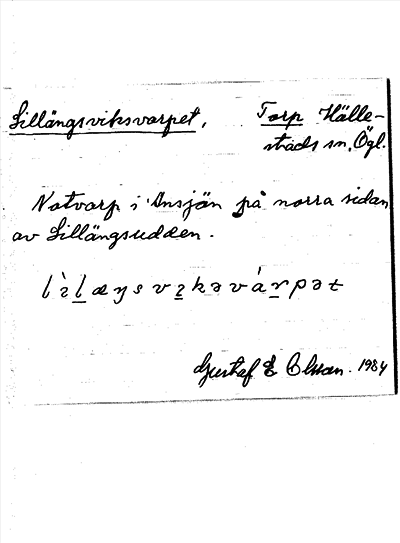 Lillängsviksvarpet, Torp Hälle-
stads sn, Ögl.
Notvarp i Ånsjön på norra sidan
av Lillängsudden.
Gustaf E Olsson. 1984